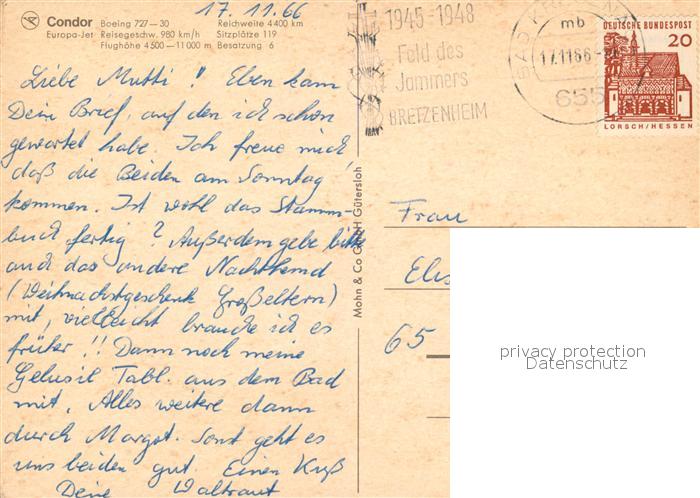 17.11.66
Condor Boeing 727—30 Reichweite 4400 km
Europa-Jet Reisegeschw. 980 km/h Sitzplätze 119
Flughöhe 4500—11000 m Besatzung 6
Liebe Mutti! Eben kam
Dein Brief, auf den ich schon
gewartet habe. Ich freue mich
daß die Beiden am Sonntag
kommen. Ist wohl das Stamm-
buch fertig? Außerdem gebe bitte
auch das andere Nachthemd
(Weihnachtsgeschenk Großeltern)
mit, vielleicht brauche ich es
früher!! Dann noch meine
Gelusil Tabl. aus dem Bad
mit. Alles weitere dann
durch Margot. Sonst geht es
uns beiden gut. Einen Kuß
Deine Waltraut
Mohn & Co GmbH Gütersloh
1945-1948
Feld des
Jammers
BRETZENHEIM
BAD KREUZNACH
mb
17.11.66
655
DEUTSCHE BUNDESPOST
20
LORSCH/HESSEN
Frau
Elis
65
privacy protection
Datenschutz